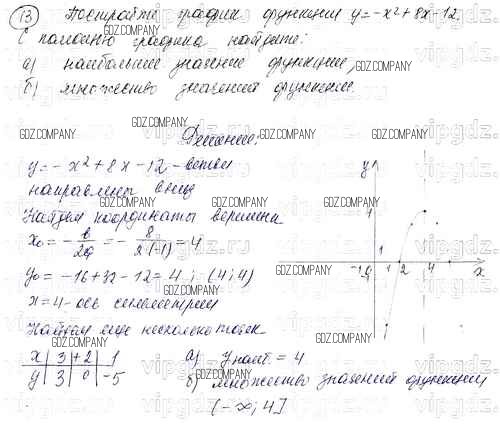 13) Постройте график функции y = -x² + 8x - 12.
С помощью графика найдите:
а) наибольшее значение функции,
б) множество значений функции.
Решение:
y = -x² + 8x - 12 - ветви
направлены вниз
Найдем координаты вершины
x₀ = -b/2a = -8/2·(-1) = 4
y₀ = -16 + 32 - 12 = 4; (4; 4)
x = 4 - ось симметрии
Найдем еще несколько точек
x | 3 | 2 | 1
y | 3 | 0 | -5
а) y наиб. = 4
б) множество значений функции
(-∞; 4]
y
4
1
-1 0 1 2 4 x
GDZ.COMPANY
vipgdz.ru